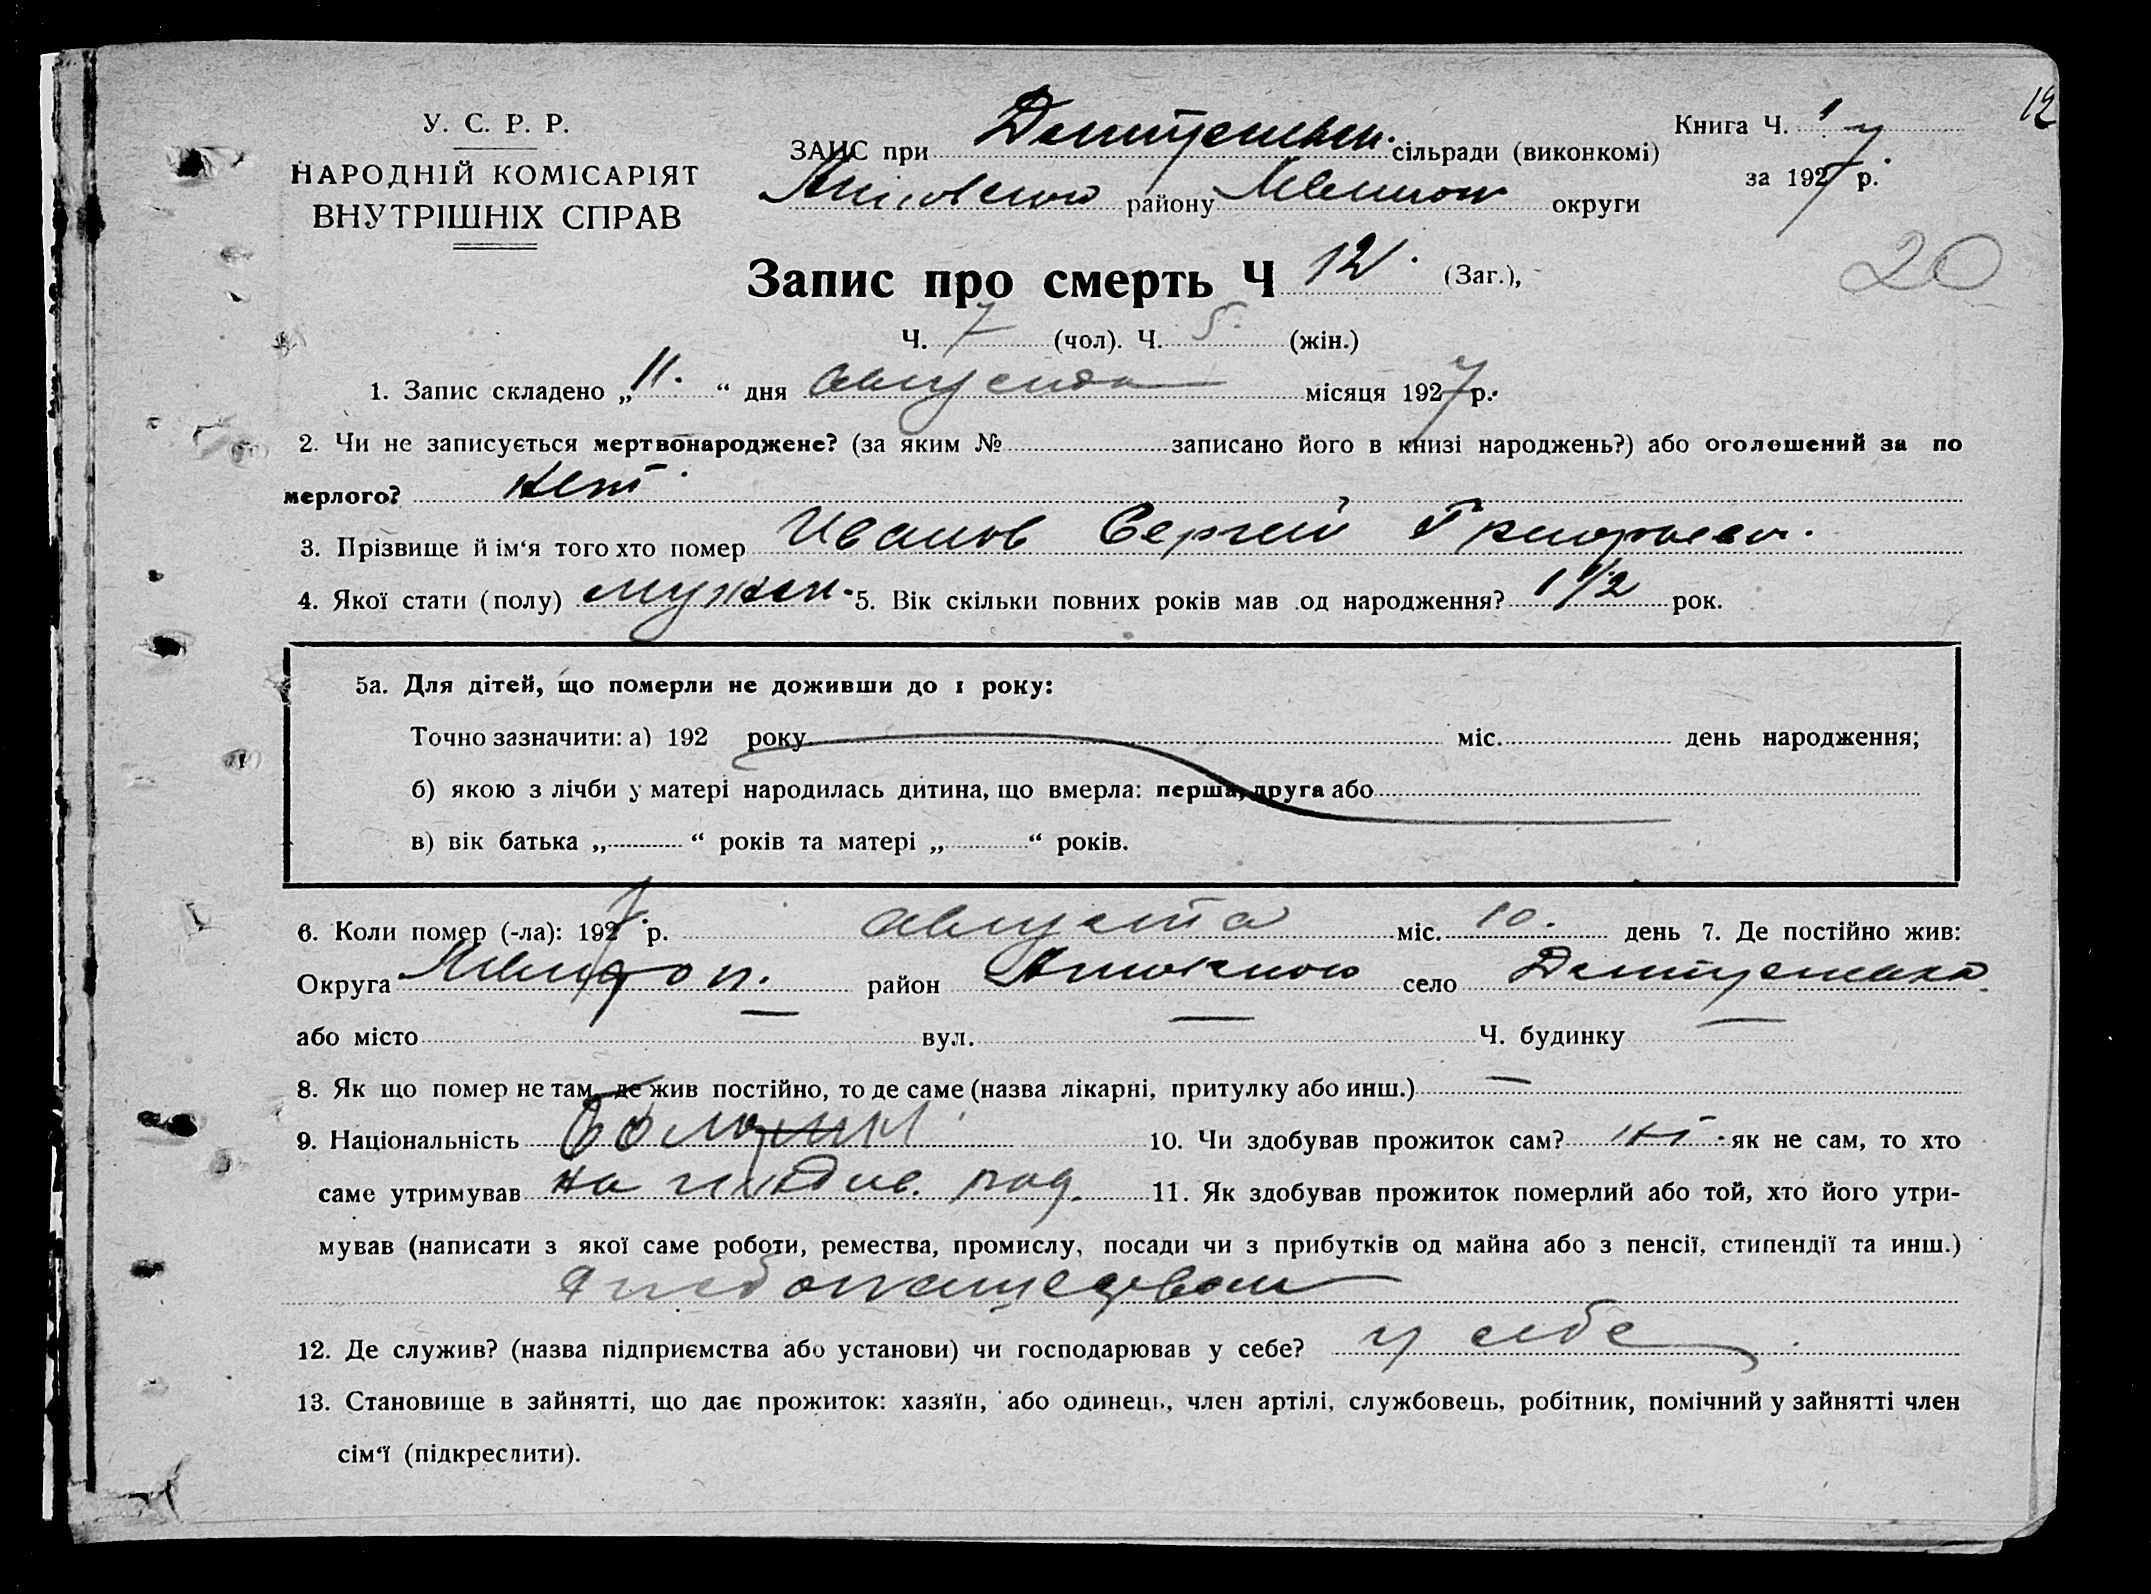 У. С. Р. Р.
НАРОДНІЙ КОМІСАРІЯТ
ВНУТРІШНІХ СПРАВ
ЗАГС при сільради (виконкомі)
району округи
Книга Ч. 1
за 1927 р.
12
20
Запис про смерть Ч 12. (Заг.),
Ч. 7 (чол). Ч. 5. (жін.)
1. Запис складено „11.“ дня августа місяця 1927 р.
2. Чи не записується мертвонароджене? (за яким № записано його в книзі народжень?) або оголошений за по
мерлого? нет.
3. Прізвище й ім‘я того хто помер Иванов Сергей Григорьев.
4. Якої стати (полу) мужск. 5. Вік скільки повних років мав од народження? 1 1/2 рок.
5а. Для дітей, що померли не доживши до 1 року:
Точно зазначити: а) 192 року міс. день народження;
б) якою з лічби у матері народилась дитина, що вмерла: перша, друга або
в) вік батька „ “ років та матері „ “ років.
6. Коли помер (-ла): 1927 р. августа міс. 10. день 7. Де постійно жив:
Округа район село
або місто — вул. — Ч. будинку —
8. Як що помер не там, де жив постійно, то де саме (назва лікарні, притулку або инш.) —
9. Національність 10. Чи здобував прожиток сам? нет. як не сам, то хто
саме утримував на иждив. род. 11. Як здобував прожиток померлий або той, хто його утри-
мував (написати з якої саме роботи, ремества, промислу, посади чи з прибутків од майна або з пенсії, стипендії та инш.)
хлебопашеством
12. Де служив? (назва підприємства або установи) чи господарював у себе? у себе
13. Становище в зайнятті, що дає прожиток: хазяїн, або одинець, член артілі, службовець, робітник, помічний у зайнятті член
сім‘ї (підкреслити).